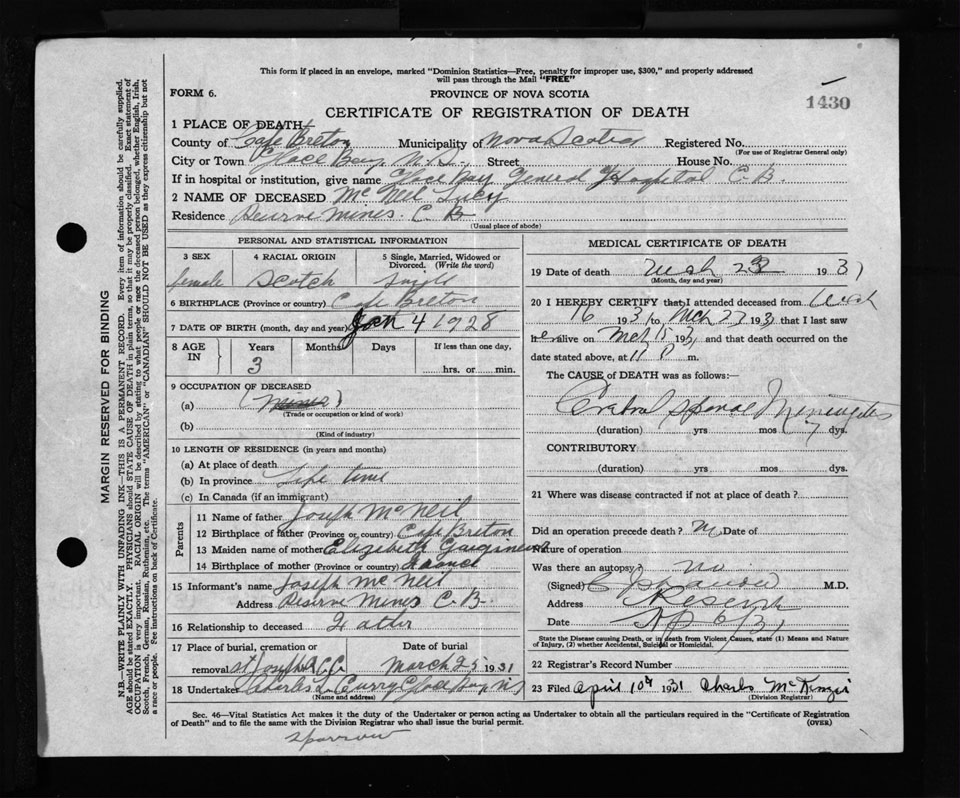 This form if placed in an envelope, marked "Dominion Statistics—Free, penalty for improper use, $300," and properly addressed
will pass through the Mail "FREE"
FORM 6.
PROVINCE OF NOVA SCOTIA
1430
CERTIFICATE OF REGISTRATION OF DEATH
1 PLACE OF DEATH
County of Cape Breton Municipality of Nova Scotia Registered No.
(For use of Registrar General only)
City or Town Glace Bay N.S. Street House No.
If in hospital or institution, give name Glace Bay General Hospital C B.
2 NAME OF DECEASED McNeil Lucy
Residence Reserve Mines. C B
(Usual place of abode)
PERSONAL AND STATISTICAL INFORMATION
3 SEX 4 RACIAL ORIGIN 5 Single, Married, Widowed or Divorced. (Write the word)
female Scotch Single
6 BIRTHPLACE (Province or country) Cape Breton
7 DATE OF BIRTH (month, day and year) Jan 4 1928
8 AGE IN Years Months Days If less than one day,
3 hrs. or min.
9 OCCUPATION OF DECEASED
(a)
(Trade or occupation or kind of work)
(b)
(Kind of industry)
10 LENGTH OF RESIDENCE (in years and months)
(a) At place of death
(b) In province Life time
(c) In Canada (if an immigrant)
Parents
11 Name of father Joseph McNeil
12 Birthplace of father (Province or country) Cape Breton
13 Maiden name of mother Elizabeth
14 Birthplace of mother (Province or country) France
15 Informant's name Joseph McNeil
Address Reserve Mines C.B.
16 Relationship to deceased Father
17 Place of burial, cremation or Date of burial
removal St Josephs March 25 1931
18 Undertaker Charles L Curry Glace Bay NS
(Name and address)
MEDICAL CERTIFICATE OF DEATH
19 Date of death Mch 23 1931
(Month, day and year)
20 I HEREBY CERTIFY that I attended deceased from Mch
16 1931 to Mch 23 1931 that I last saw
her alive on Mch 193 and that death occurred on
date stated above, at 11 P m.
The CAUSE of DEATH was as follows:—
Cerebral Spinal Meningitis
(duration) yrs mos 7 dys.
CONTRIBUTORY
(duration) yrs. mos. dys.
21 Where was disease contracted if not at place of death?
Did an operation precede death? No Date of
Nature of operation
Was there an autopsy? No
(Signed) M.D.
Address Reserve
Date
State the Disease causing Death, or in death from Violent Causes, state (1) Means and Nature
of Injury, (2) whether Accidental, Suicidal or Homicidal.
22 Registrar's Record Number
23 Filed April 10th 1931 Charles McKenzie
(Division Registrar)
Sec. 46—Vital Statistics Act makes it the duty of the Undertaker or person acting as Undertaker to obtain all the particulars required in the "Certificate of Registration
of Death" and to file the same with the Division Registrar who shall issue the burial permit.
(OVER)
Sparrow
MARGIN RESERVED FOR BINDING
N.B.—WRITE PLAINLY WITH UNFADING INK—THIS IS A PERMANENT RECORD. Every item of information should be carefully supplied.
AGE should be stated EXACTLY. PHYSICIANS should STATE CAUSE OF DEATH in plain terms, so that it may be properly classified. Exact statement of
OCCUPATION is very important. RACIAL ORIGIN will be described by stating to what people or race the deceased person belonged, whether English, Irish,
Scotch, French, German, Russian, Ruthenian, etc. The terms "AMERICAN" or "CANADIAN" SHOULD NOT BE USED as they express citizenship but not
a race or people. See instructions on back of Certificate.